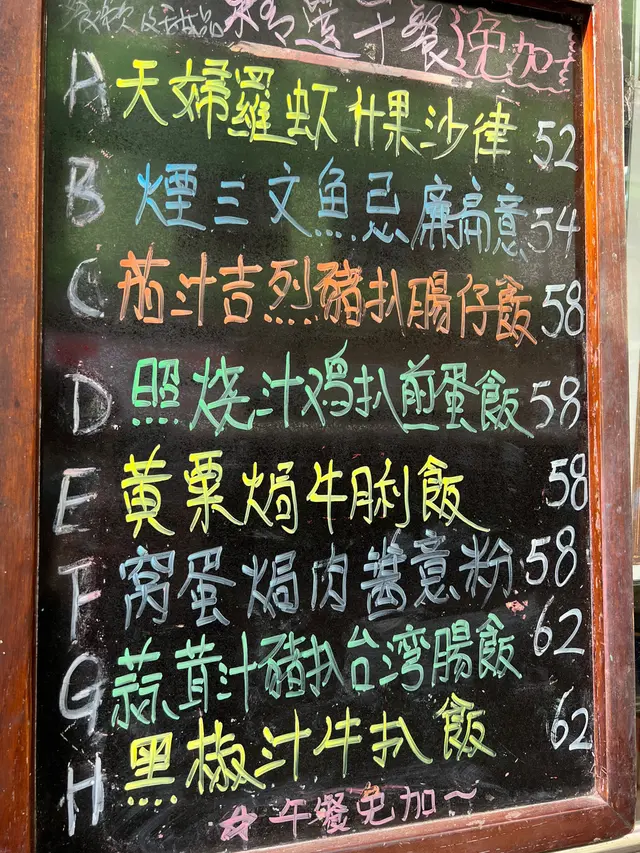 餐飲及甜品 精選午餐 免加
A 天婦羅蚊什果沙律 52
B 煙三文魚忌廉扁意 54
C 茄汁吉烈豬扒腸仔飯 58
D 照燒汁鸡扒煎蛋飯 58
E 黃栗焗牛脷飯 58
F 窩蛋焗肉醬意粉 58
G 蒜茸汁豬扒台湾腸飯 62
H 黑椒汁牛扒飯 62
☆午餐免加~